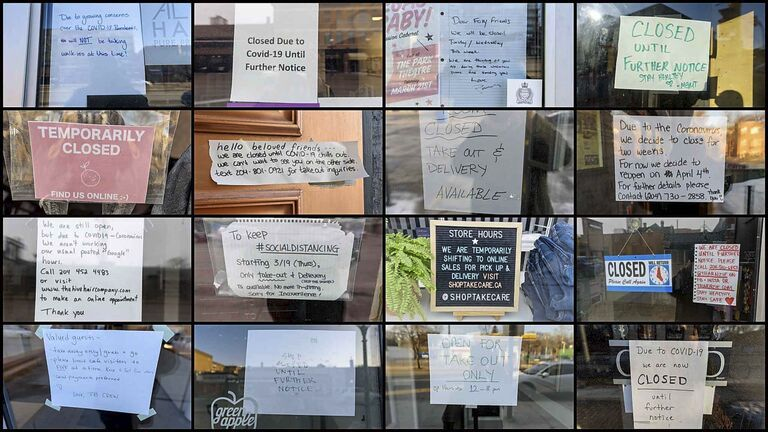 Due to growing concerns
over the COVID-19 Pandemic,
we will NOT be taking
walk-ins at this time!
Closed Due to
Covid-19 Until
Further Notice
BABY!
THE PARK
THEATRE
MARCH 21ST
Dear Foxy Friends
We will be closed
Tuesday / Wednesday
this week.
CLOSED
UNTIL
FURTHER NOTICE
STAY HEALTHY
TEMPORARILY
CLOSED
FIND US ONLINE :-)
hello beloved friends...
we are closed until COVID-19 chills out.
we can't wait to see you on the other side.
text 204-801-0921 for takeout inquiries.
CLOSED
TAKE OUT &
DELIVERY
AVAILABLE
Due to the Coronavirus
we decide to close for
two weeks.
For now we decide to
reopen on April 4th
For further details please
contact (204) 730-2858.
Thank you
We are still open,
but due to COVID19-Coronavirus
We aren't working
our usual posted "Google"
hours.
Call 204 452 4483
or visit
www.thehivehaircompany.com
to make an online appointment
Thank you
To keep
#SOCIALDISTANCING
Starting 3/19 (Thurs),
Only take-out & Delivery
is available. No more Dine-In
Sorry for Inconvenience!
STORE HOURS
WE ARE TEMPORARILY
SHIFTING TO ONLINE
SALES FOR PICK UP &
DELIVERY VISIT
SHOPTAKECARE.CA
@SHOPTAKECARE
CLOSED
Please Call Again
WE ARE CLOSED
UNTIL FURTHER
NOTICE. PLEASE
STAY HEALTHY
STAY SAFE
Valued guests-
take away only / grab + go
please limit cafe visitors to
FIVE at a time.
UNTIL
FURTHER
NOTICE
green
apple
OPEN FOR
TAKE OUT
ONLY
12-8pm
Due to COVID-19
we are now
CLOSED
until
further
notice